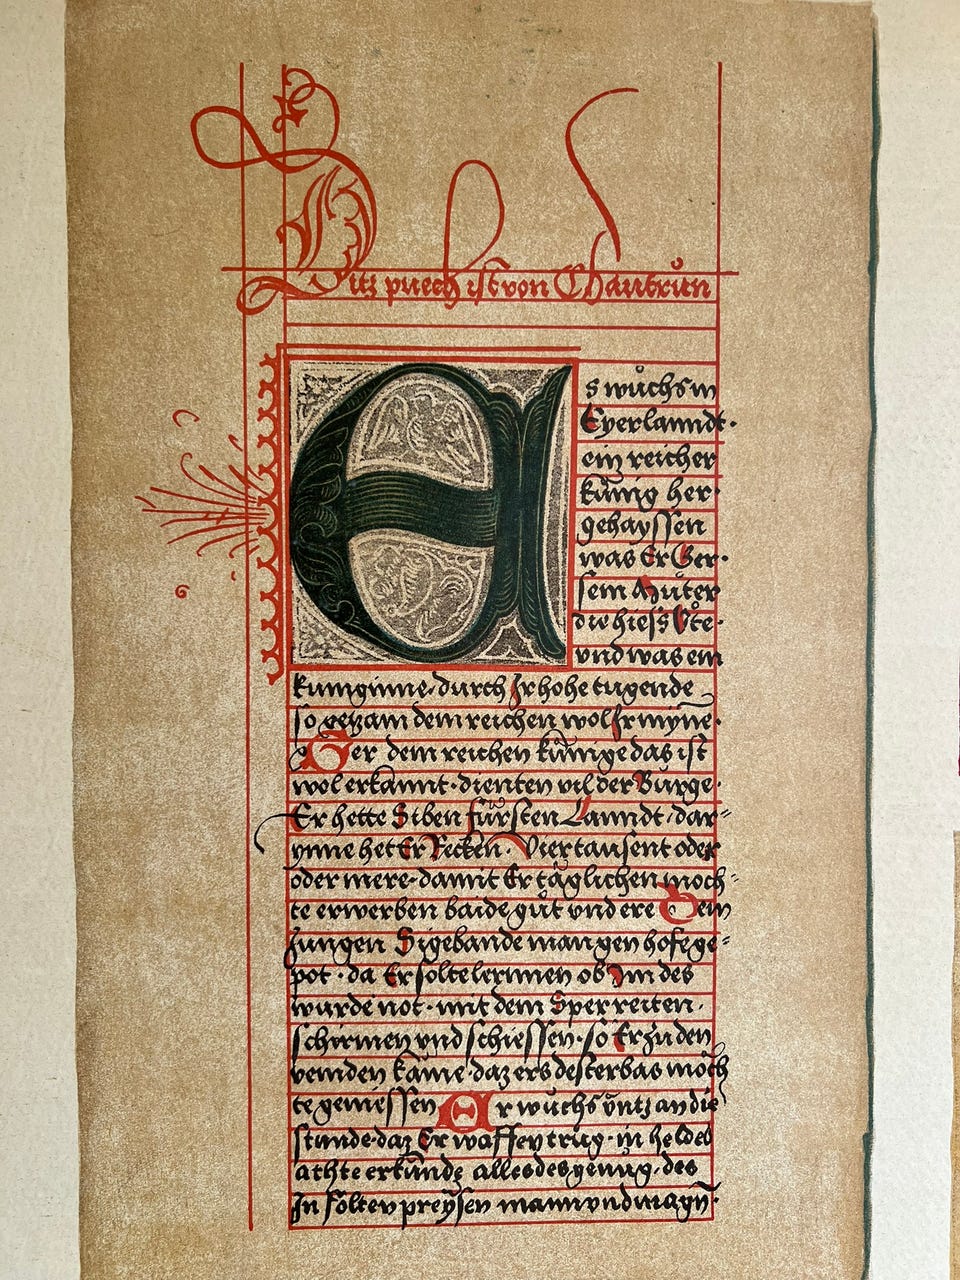 Ditz puech ist von Chautrůn
Es wůchs in
Eyerlanndt·
ein reicher
kůnig her·
gehayssen
was Er Ger·
sein Můter
die hiess Ůte·
vnd was ein
kuniginne· durch Jr hohe tugende
so gezam dem reichen wol Jr mynne·
Ger dem reichen kůnige das ist
wol erkannt· dienten vil der Burge·
Er hette Siben fürsten Lanndt· dar-
ynne het Er Recken· Viertausent oder
oder mere· damit Er täglichen moch-
te erwerben baide gůt vnd ere Dem
Jungen Sigebande man gen hofe ge-
pot· da Er solte lernnen ob Jm des
wurde not· mit dem Sper reiten·
schirmen vnd schiessen· so Er zu den
veinden käme· daz ers desterbas möch
te geniessen Er wůchs vntz an die
stunde· daz Er waffen trug· in heldes
achte erkunde alles des genůg· des
Jn solten preysen mann vnd magn·